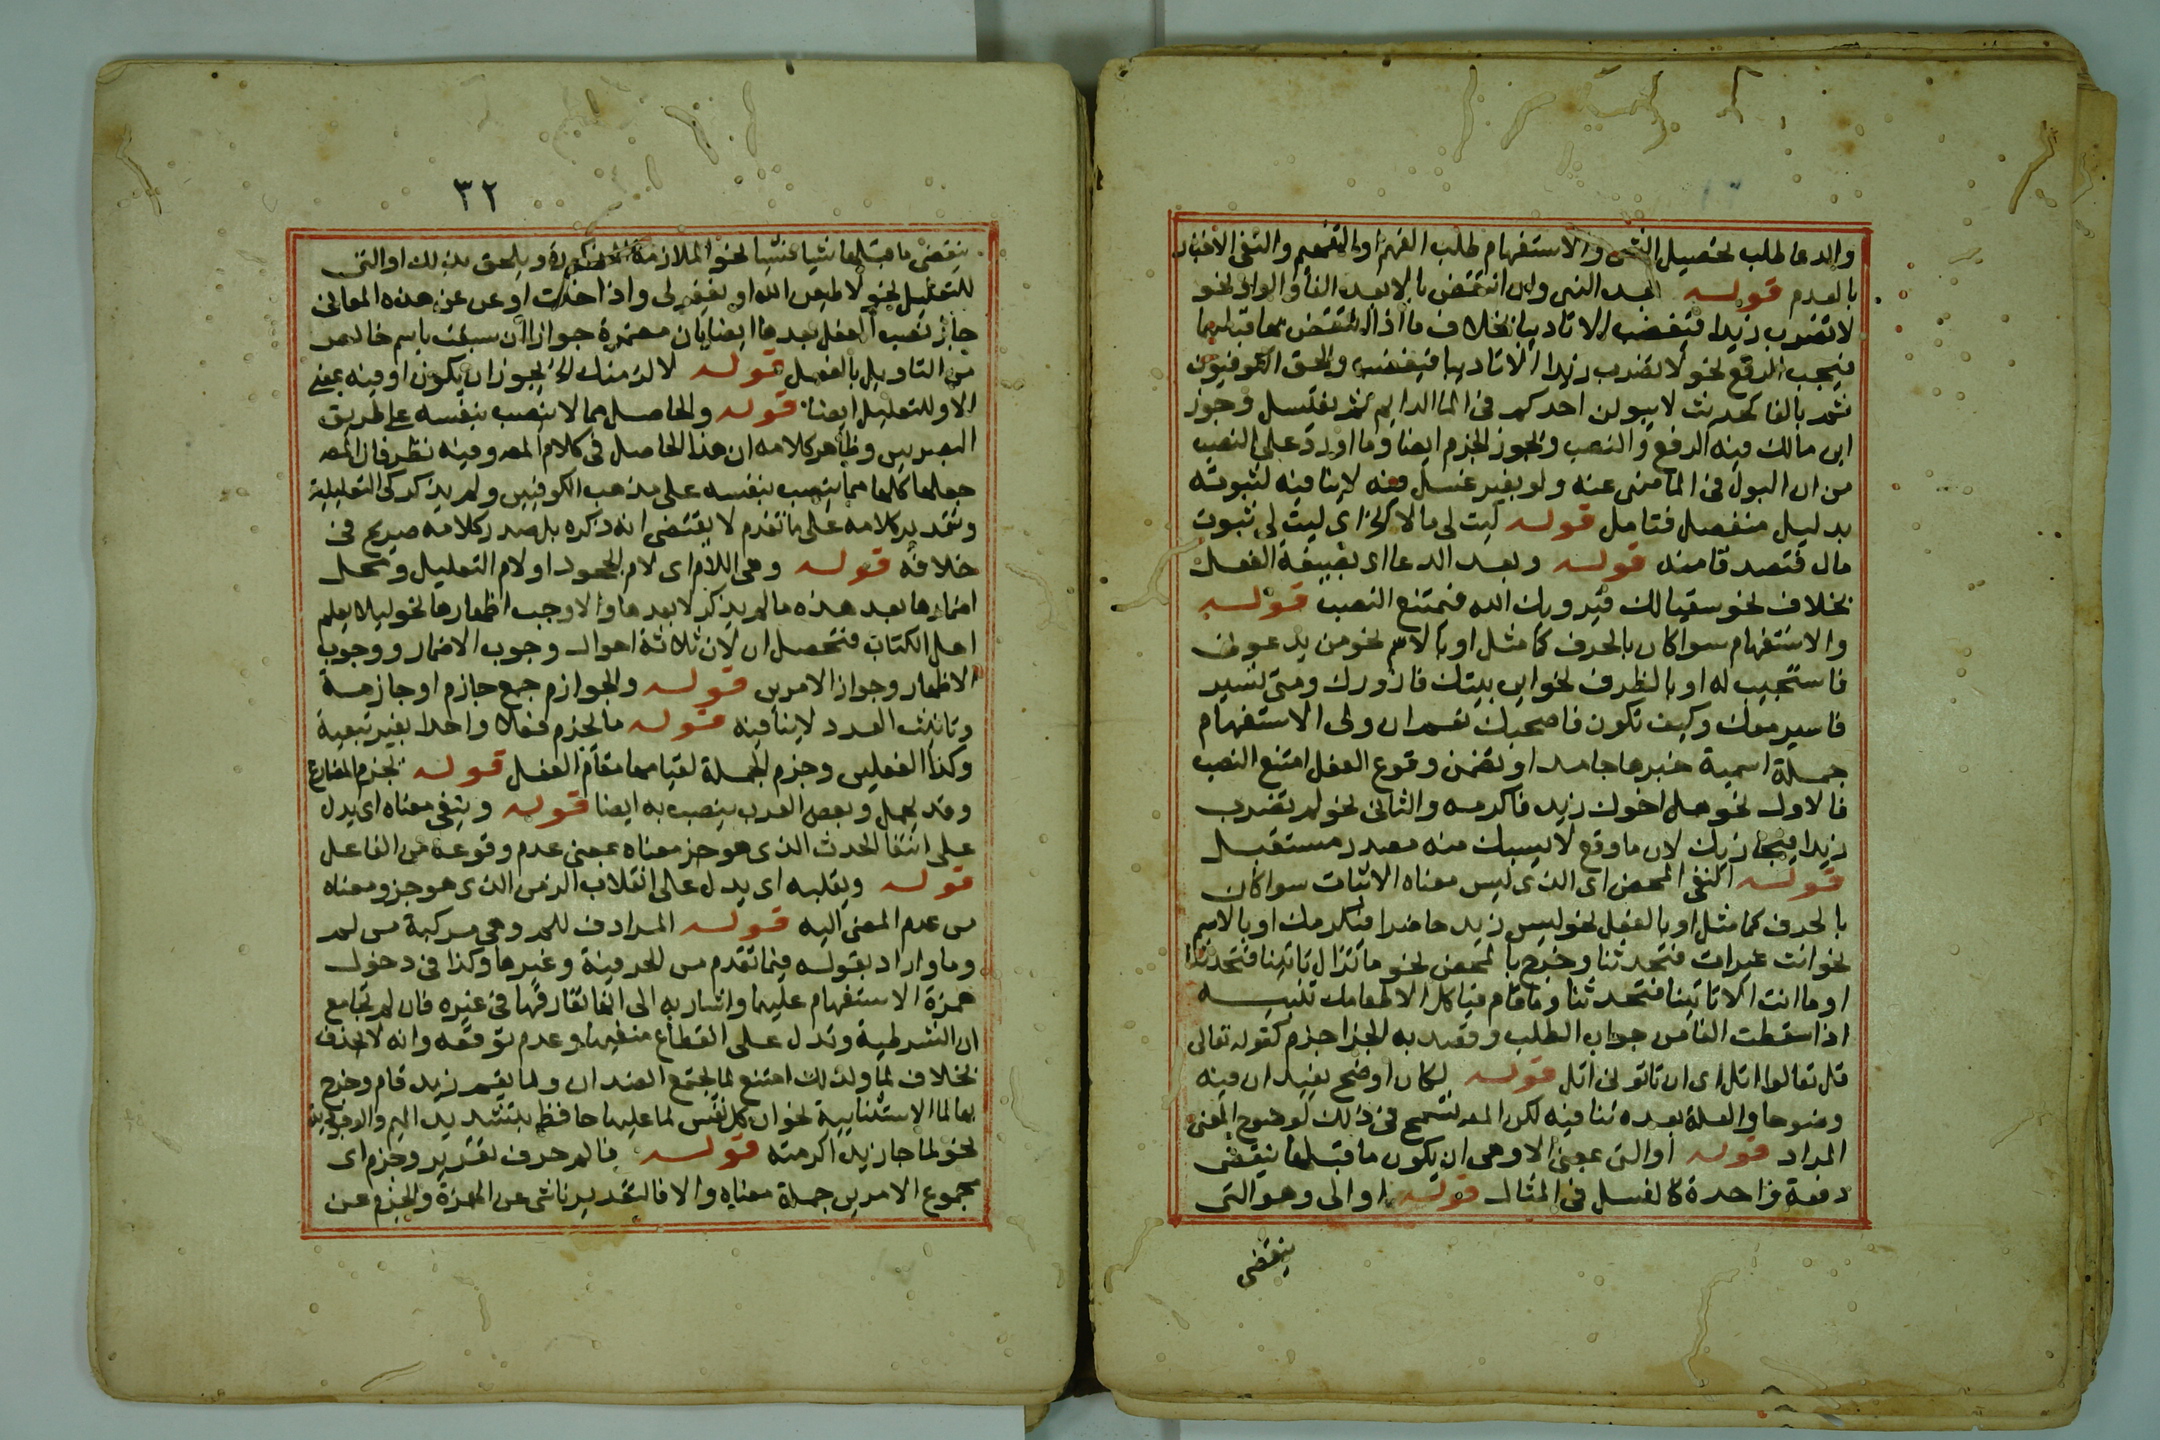 والدعا طلب تحصيل الشى والاستفهام طلب الفهم او التفهيم والنفى الاخبار
بالعدم قوله بعد النهى وان انتقض بالا بعد الفا والواو نحو
لا تضرب زيدا فيغضب الا تاديبا بخلاف ما اذا انتقض بها قبلهما
فيجب الرفع نحو لا تضرب زيدا الا تاديبا فيغضب والحق الكوفيون
ثم بالفا كحديث لا يبولن احدكم فى الما الدايم ثم يغتسل وجوز
ابن مالك فيه الرفع والنصب ويجوز الجزم ايضا وما اورد على النصب
من ان البول فى الما منهى عنه ولو بغير غسل فيه لا ينافيه لثبوته
بدليل منفصل فتامل قوله ليت لى مالا الخ اى ليت لى ثبوت
مال فتصدقا منه قوله وبعد الدعا اى بصيغة الفعل
بخلاف نحو سقيا لك فيرويك الله فيمتنع النصب قوله
والاستفهام سوا كان بالحرف كما مثل او بالاسم نحو من يدعونى
فاستجيب له او بالظرف نحو اين بيتك فازورك ومتى تسير
فاسير معك وكيف تكون فاصحبك نعم ان ولى الاستفهام
جملة اسمية خبرها جامد او تضمن وقوع الفعل امتنع النصب
فالاول نحو هل اخوك زيد فاكرمه والثانى نحو لم تضرب
زيدا فيجازيك لان ما وقع لا يسبك منه مصدر مستقبل
قوله النفى المحض اى الذى ليس معناه الاثبات سوا كان
بالحرف كما مثل او بالفعل نحو ليس زيد حاضرا فيكرمك او بالاسم
نحو انت غير ات فتحدثنا وخرج بالمحض نحو ما تزال تاتينا فتحدثنا
او ما انت الا تاتينا فتحدثنا وما قام فياكل الا طعامك تنبيه
اذا سقطت الفا من جواب الطلب وقصد به الجزا جزم كقوله تعالى
قل تعالوا اتل اى ان تاتونى اتل قوله لكان اوضح يفيد ان فيه
وضوحا والعلة بعده تنافيه لكن المص تسمح فى ذلك لوضوح المعنى
المراد قوله او التى بمعنى الا وهى ان يكون ما قبلها ينقضى
دفعة واحدة كالفسل فى المثال قوله او الى وهو التى
ينقضى
٣٢
ينقضى ما قبلها شيا فشيا نحو الملازمة المذكورة ويلحق بذلك او التى
للتعليل نحو لاطيعن الله او يغفر لى واذا خلت او عن عن هذه المعانى
جاز نصب الفعل بعدها ايضا بان مضمرة جوازا ان سبقت باسم خالص
من التاويل بالفعل قوله لالزمنك الخ يجوز ان يكون او فيه بمعنى
الا وللتعليل ايضا قوله والحاصل مما لا ينصب بنفسه على طريق
البصريين وظاهر كلامه ان هذا الحاصل فى كلام المص وفيه نظر فان المص
جعلها كلها مما ينصب بنفسه على مذهب الكوفيين ولم يذكر كى التعليلية
وتقدير كلامه على ما تقدم لا يقتضى انه ذكره بل صدر كلامه صريح فى
خلافه قوله وهى اللام اى لام الجحود او لام التعليل ومحل
اضمارها بعد هذه ما لم يذكر لا بعدها والا وجب اظهارها نحو ليلا يعلم
اهل الكتاب فتحصل ان لان ثلاثة احوال وجوب الاضمار ووجوب
الاظهار وجواز الامرين قوله والجوازم جمع جازم او جازمة
وتانيث العدد لا ينافيه قوله ما يجزم فعلا واحدا بغير تبعية
وكذا الفعلين وجزم الجملة لقيامها مقام الفعل قوله بجزم المضارع
وقد يهمل وبعض العرب ينصب به ايضا قوله وينفى معناه اى يدل
على انتفا الحدث الذى هو جز معناه بمعنى عدم وقوعه من الفاعل
قوله ويقلبه اى يدل على انقلاب الزمن الذى هو جزو معناه
من عدم المضى اليه قوله المرادف للم وهى مركبة من لم
وما واراد بقوله فيما تقدم من الحرفية وغيرها وكذا فى دخول
همزة الاستفهام عليها واشار به الى انها تفارقها فى غيره فان لم تجامع
ان الشرطية وتدل على انقطاع منفيها وعدم توقعه وانه لا يحذف
بخلاف لما ولذلك امتنع لما يجتمع الضدان ولما يقم زيد قام وخرج
بها لما الاستثنايية نحو ان كل نفس لما عليها حافظ بتشديد الميم والوجودية
نحو لما جا زيد اكرمته قوله فالم حرف تقرير وجزم اى
مجموع الامرين جملة معناه والا فالتقدير ناشى عن الهمزة والجزم عن